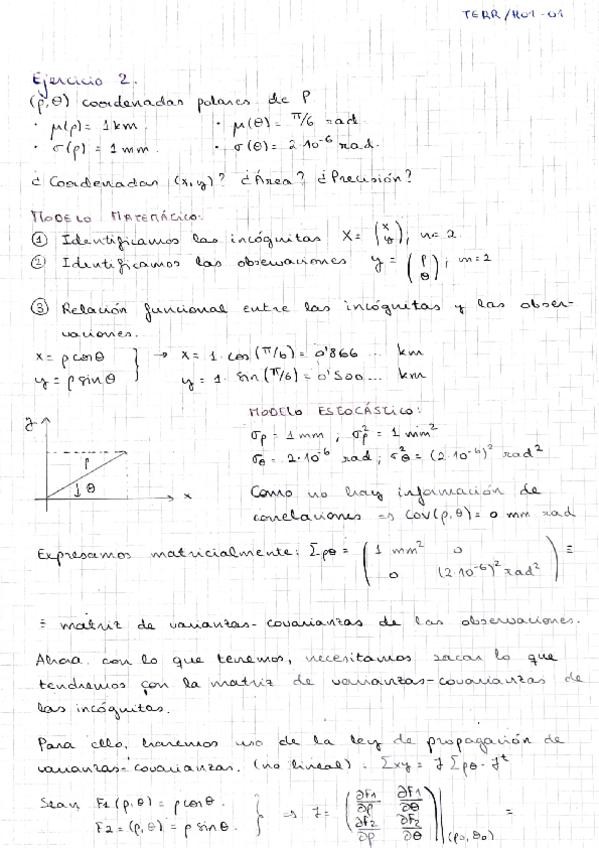 TERR/H01-01
Ejercicio 2.
(ρ,θ) coordenadas polares de P
· μ(ρ)= 1 km. · μ(θ)= π/6 rad
· σ(ρ)= 1 mm. · σ(θ)= 2·10⁻⁶ rad.
¿Coordenadas (x,y)? ¿Área? ¿Precisión?
MODELO MATEMÁTICO:
① Identificamos las incógnitas X= (x y), n= 2
② Identificamos las observaciones y = (ρ θ), m=2
③ Relación funcional entre las incógnitas y las obser-
vaciones.
x= ρ cosθ } → x= 1· cos(π/6)= 0'866 ... km
y= ρ sinθ y= 1· sin(π/6)= 0'500... km
MODELO ESTOCÁSTICO:
σρ= 1 mm ; σρ²= 1 mm²
σθ= 2·10⁻⁶ rad; σθ²= (2·10⁻⁶)² rad²
y
ρ
θ
x
Como no hay información de
correlaciones => Cov(ρ,θ)= 0 mm rad
Expresamos matricialmente: Σρθ = (1 mm² 0 ≡
0 (2·10⁻⁶)² rad²)
≡ matriz de varianzas-covarianzas de las observaciones.
Ahora, con lo que tenemos, necesitamos sacar lo que
tendremos con la matriz de varianzas-covarianzas de
las incógnitas.
Para ello, haremos uso de la ley de propagación de
varianzas-covarianzas. (no lineal) : Σxy = J Σρθ · Jᵗ
Sean F1 (ρ,θ) = ρ cosθ. } => J= (∂F1/∂ρ ∂F1/∂θ =
F2 = (ρ,θ) = ρ sinθ. ∂F2/∂ρ ∂F2/∂θ)|(ρ₀,θ₀)